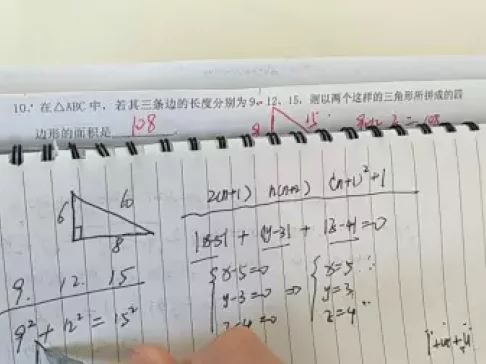 10. 在△ABC中,若其三条边的长度分别为9、12、15,则以两个这样的三角形所拼成的四
边形的面积是 108
9 15
6 10
8
2(n+1) n(n+2) (n+1)²+1
|x-5| + |y-3| + |z-4| = 0
x-5=0 x=5
y-3=0 ⇒ y=3
z-4=0 z=4
9. 12. 15
9² + 12² = 15²